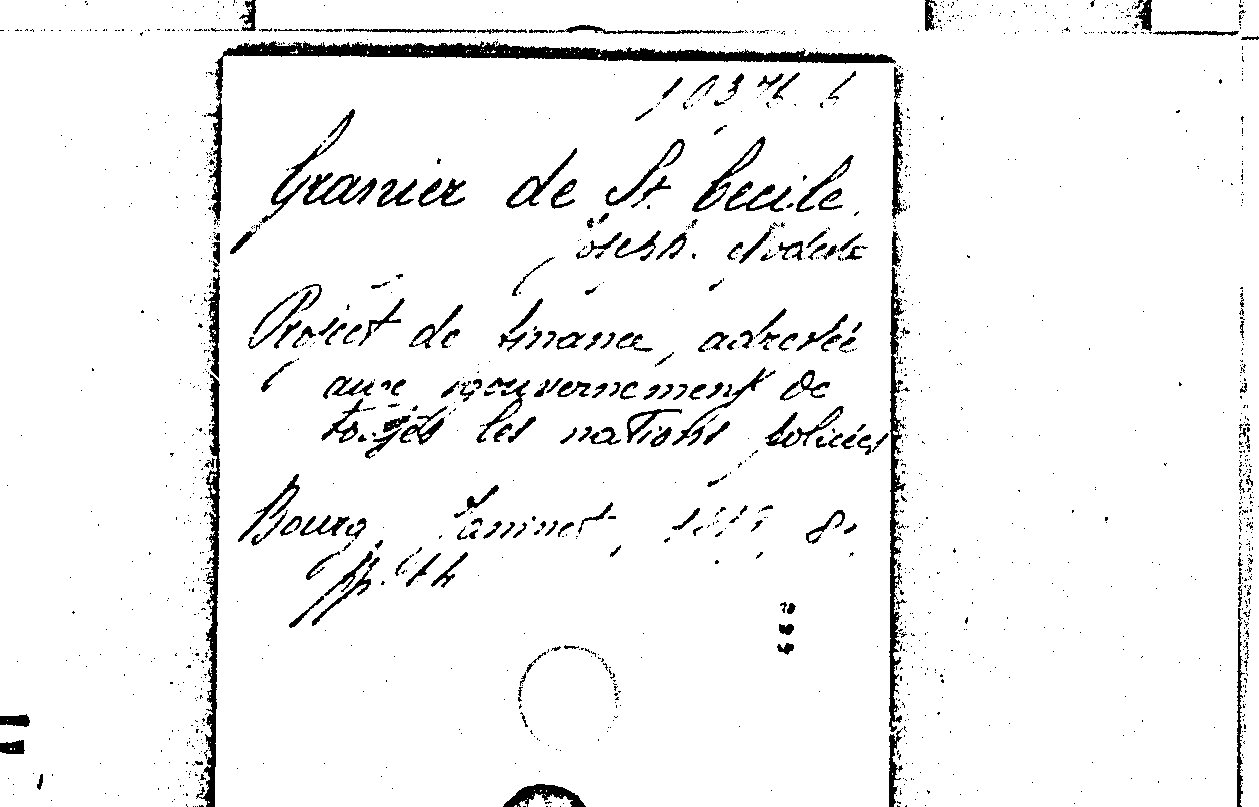 10376. b
Granier de St. Cecile
Joseph. Modeste
Project de finance, adressée
aux gouvernement de
toutes les nations policées
Bourg, Janinet, 8°.
pp. 44